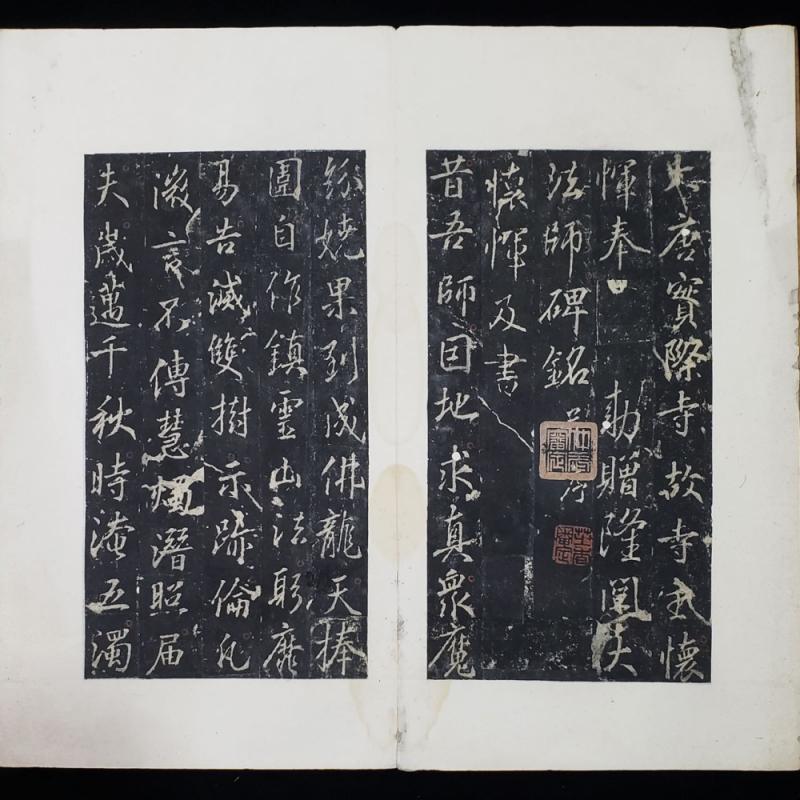 大唐實際寺故寺主懷
惲奉 勅贈隆闡大
法師碑銘并序
懷惲及書
昔吾師因地求真衆魔
紛嬈果到成佛龍天捧
圍自作鎮靈山法躬靡
易告滅雙樹示跡倫凡
微言不傳慧燭潛照届
夫歲邁千秋時淹五濁